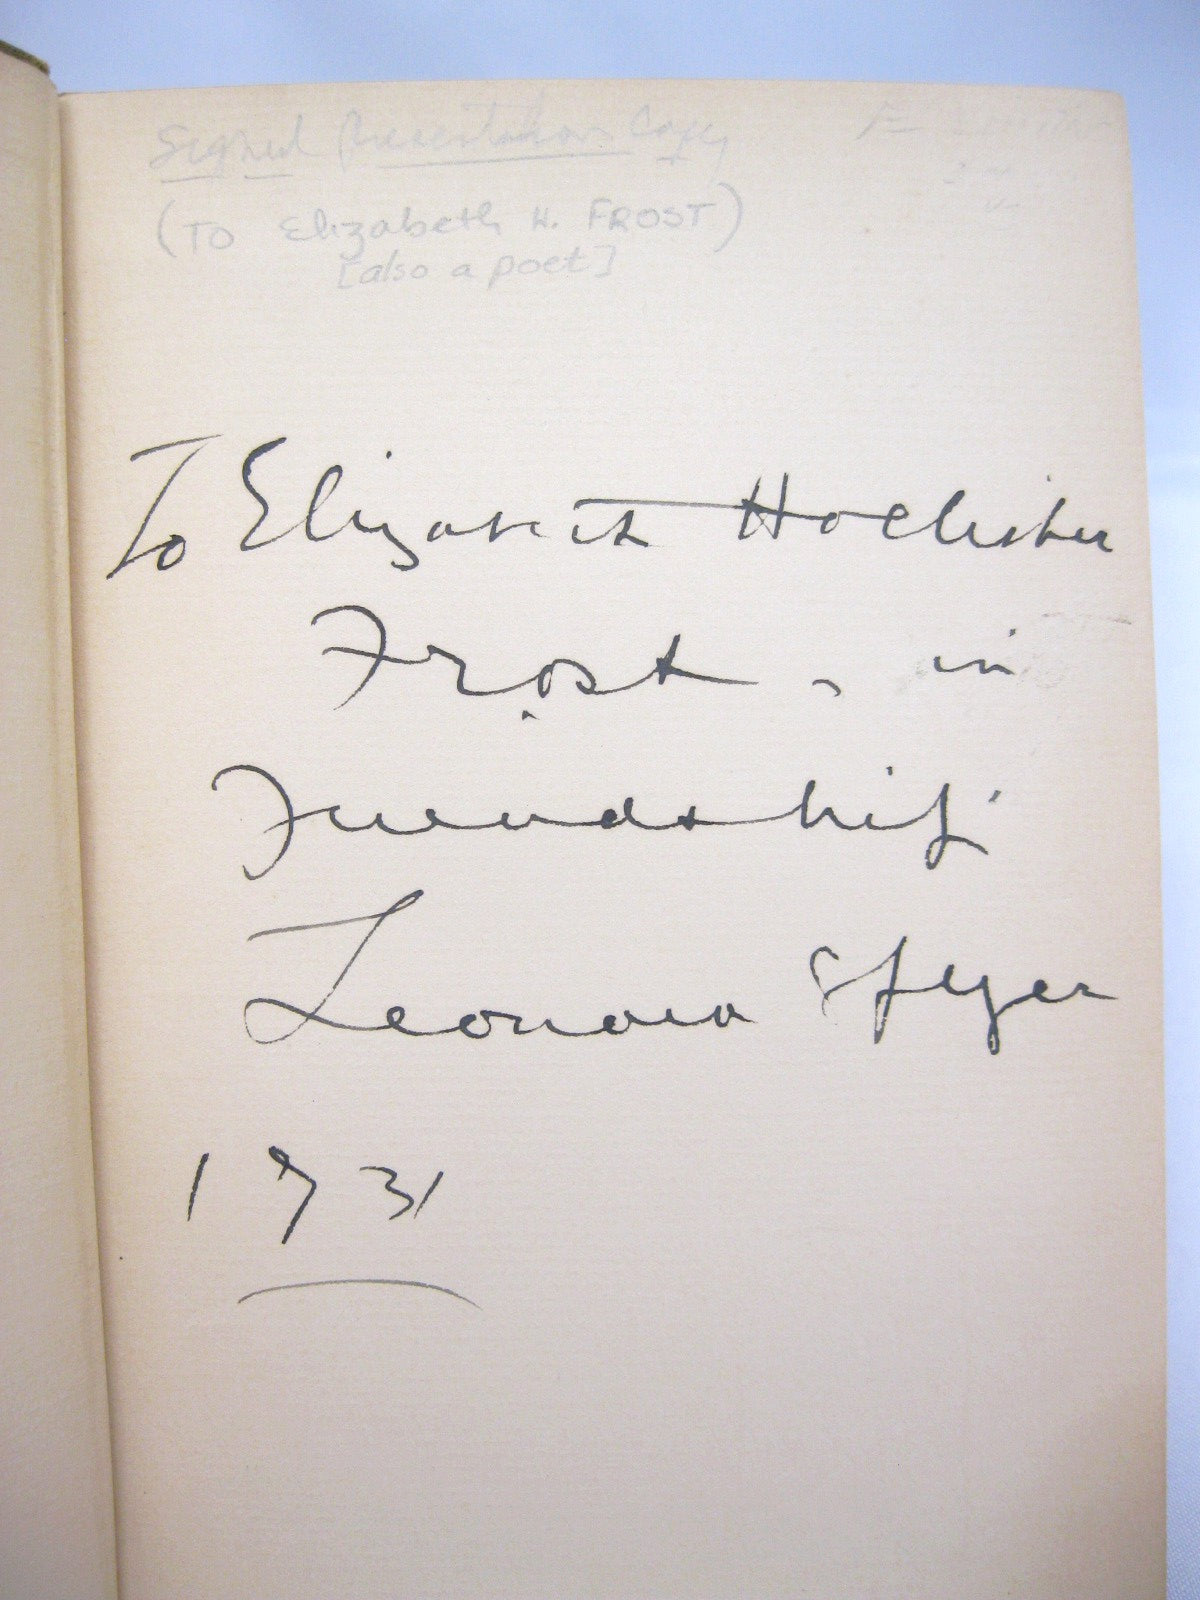 Signed Presentation Copy
(TO Elizabeth H. FROST)
[also a poet]
To Elizabeth Hollister
Frost, in
Friendship.
Leonora Speyer
1931